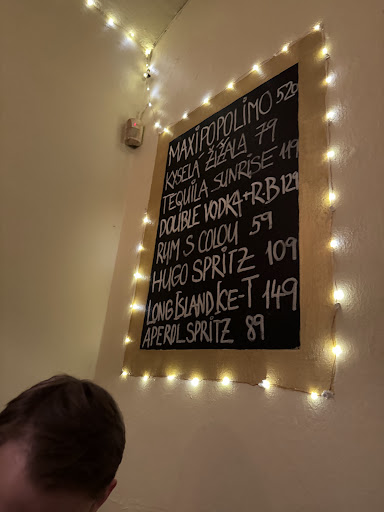 MAXIPOPOLIMO 520
KYSELÁ ŽÍŽALA 79
TEQUILA SUNRISE 119
DOUBLE VODKA+R.B 129
RUM S COLOU 59
HUGO SPRITZ 109
LONG ISLAND ICE-T 149
APEROL SPRITZ 89